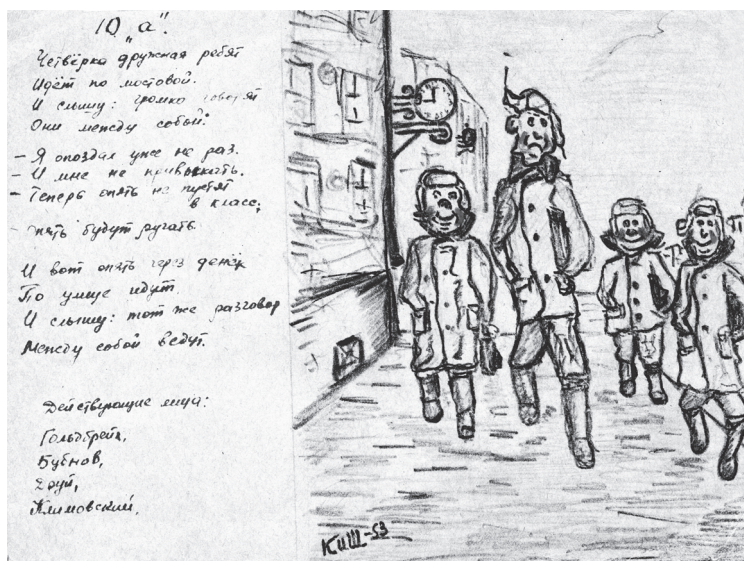 10 „а".
Четвёрка дружная ребят
Идёт по мостовой.
И слышу: громко говорят
Они между собой:
– Я опоздал уже не раз.
– И мне не привыкать.
– Теперь опять не пустят
в класс,
опять будут ругать.
И вот опять через денёк
По улице идут.
И слышу: тот же разговор
Между собой ведут.
Действующие лица:
Бубнов,
Друй,
Климовский.
КиШ-53